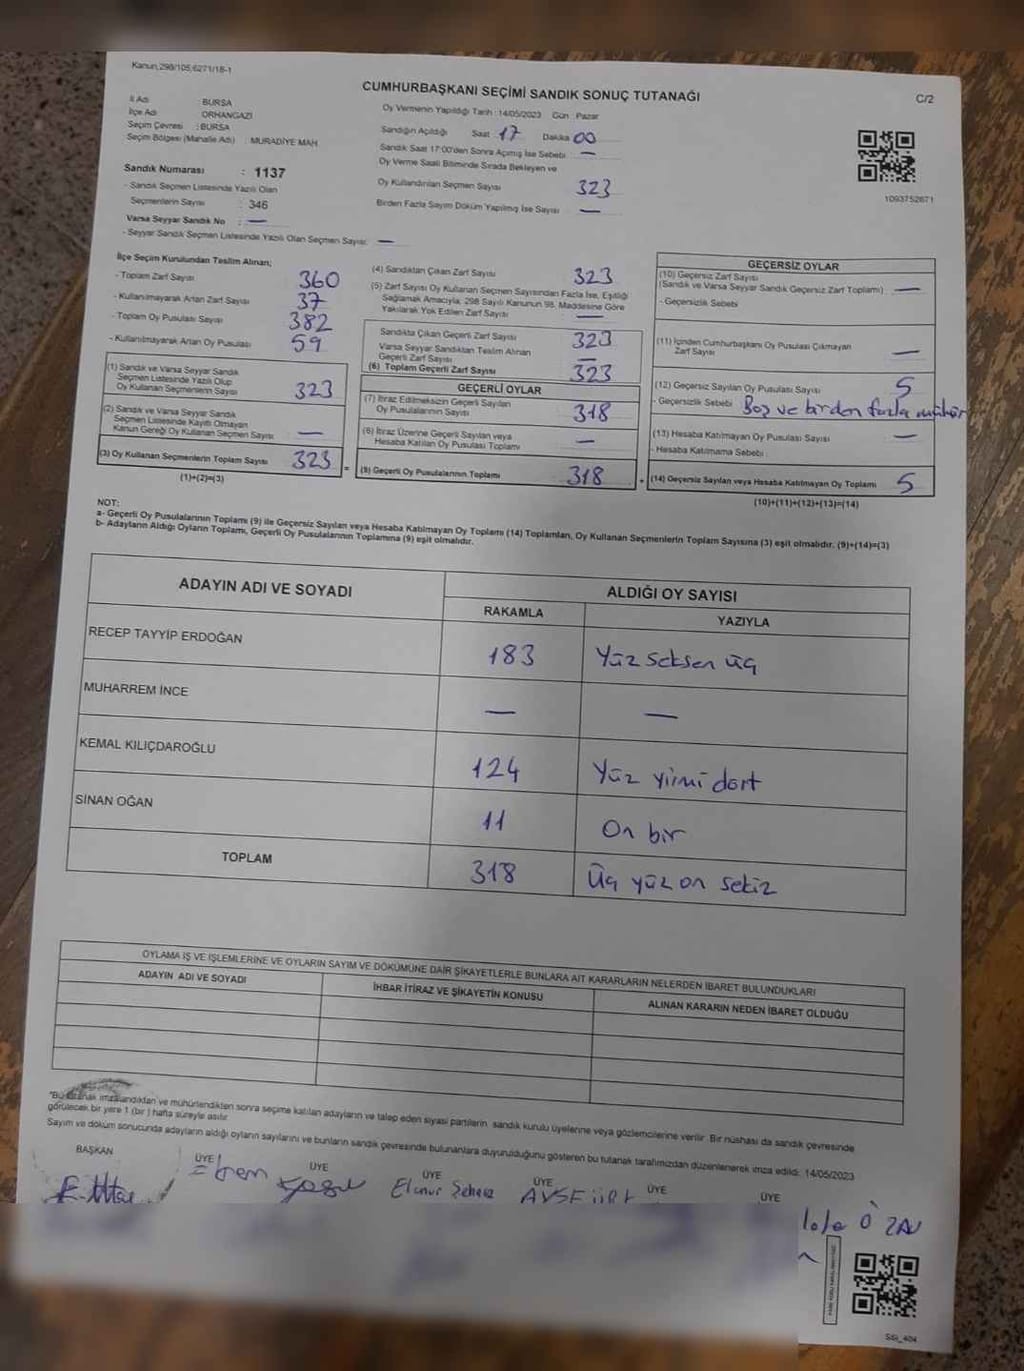 Kanun,298/105,6271/18-1
CUMHURBAŞKANI SEÇİMİ SANDIK SONUÇ TUTANAĞI
C/2
İl Adı : BURSA
İlçe Adı : ORHANGAZİ
Seçim Çevresi : BURSA
Seçim Bölgesi (Mahalle Adı) : MURADİYE MAH.
Sandık Numarası : 1137
- Sandık Seçmen Listesinde Yazılı Olan
Seçmenlerin Sayısı : 346
Varsa Seyyar Sandık No : —
- Seyyar Sandık Seçmen Listesinde Yazılı Olan Seçmen Sayısı: —
Oy Vermenin Yapıldığı Tarih : 14/05/2023 Gün : Pazar
Sandığın Açıldığı Saat : 17 Dakika 00
Sandık Saat 17:00'den Sonra Açılmış İse Sebebi : —
Oy Verme Saati Bitiminde Sırada Bekleyen ve
Oy Kullandırılan Seçmen Sayısı 323
Birden Fazla Sayım Döküm Yapılmış İse Sayısı —
1093752671
İlçe Seçim Kurulundan Teslim Alınan;
- Toplam Zarf Sayısı 360
- Kullanılmayarak Artan Zarf Sayısı 37
- Toplam Oy Pusulası Sayısı 382
- Kullanılmayarak Artan Oy Pusulası 59
(1) Sandık ve Varsa Seyyar Sandık
Seçmen Listesinde Yazılı Olup
Oy Kullanan Seçmenlerin Sayısı 323
(2) Sandık ve Varsa Seyyar Sandık
Seçmen Listesinde Kayıtlı Olmayan
Kanun Gereği Oy Kullanan Seçmen Sayısı —
(3) Oy Kullanan Seçmenlerin Toplam Sayısı 323
(1)+(2)=(3)
(4) Sandıktan Çıkan Zarf Sayısı 323
(5) Zarf Sayısı Oy Kullanan Seçmen Sayısından Fazla İse, Eşitliği
Sağlamak Amacıyla, 298 Sayılı Kanunun 98. Maddesine Göre
Yakılarak Yok Edilen Zarf Sayısı —
Sandıkta Çıkan Geçerli Zarf Sayısı 323
Varsa Seyyar Sandıktan Teslim Alınan
Geçerli Zarf Sayısı —
(6) Toplam Geçerli Zarf Sayısı 323
GEÇERLİ OYLAR
(7) İtiraz Edilmeksizin Geçerli Sayılan
Oy Pusulalarının Sayısı 318
(8) İtiraz Üzerine Geçerli Sayılan veya
Hesaba Katılan Oy Pusulası Toplamı —
= (9) Geçerli Oy Pusulalarının Toplamı 318
GEÇERSİZ OYLAR
(10) Geçersiz Zarf Sayısı
(Sandık ve Varsa Seyyar Sandık Geçersiz Zarf Toplamı) —
- Geçersizlik Sebebi
(11) İçinden Cumhurbaşkanı Oy Pusulası Çıkmayan
Zarf Sayısı —
(12) Geçersiz Sayılan Oy Pusulası Sayısı 5
- Geçersizlik Sebebi Boş ve birden fazla mühür
(13) Hesaba Katılmayan Oy Pusulası Sayısı —
- Hesaba Katılmama Sebebi :
+ (14) Geçersiz Sayılan veya Hesaba Katılmayan Oy Toplamı 5
(10)+(11)+(12)+(13)=(14)
NOT:
a- Geçerli Oy Pusulalarının Toplamı (9) ile Geçersiz Sayılan veya Hesaba Katılmayan Oy Toplamı (14) Toplamları, Oy Kullanan Seçmenlerin Toplam Sayısına (3) eşit olmalıdır. (9)+(14)=(3)
b- Adayların Aldığı Oyların Toplamı, Geçerli Oy Pusulalarının Toplamına (9) eşit olmalıdır.
ADAYIN ADI VE SOYADI
ALDIĞI OY SAYISI
RAKAMLA YAZIYLA
RECEP TAYYİP ERDOĞAN 183 Yüz seksen üç
MUHARREM İNCE — —
KEMAL KILIÇDAROĞLU 124 Yüz yirmi dört
SİNAN OĞAN 11 On bir
TOPLAM 318 Üç yüz on sekiz
OYLAMA İŞ VE İŞLEMLERİNE VE OYLARIN SAYIM VE DÖKÜMÜNE DAİR ŞİKAYETLERLE BUNLARA AİT KARARLARIN NELERDEN İBARET BULUNDUKLARI
ADAYIN ADI VE SOYADI İHBAR İTİRAZ VE ŞİKAYETİN KONUSU ALINAN KARARIN NEDEN İBARET OLDUĞU
*Bu tutanak imzalandıktan ve mühürlendikten sonra seçime katılan adayların ve talep eden siyasi partilerin sandık kurulu üyelerine veya gözlemcilerine verilir. Bir nüshası da sandık çevresinde
görülecek bir yere 1 (bir ) hafta süreyle asılır.
Sayım ve döküm sonucunda adayların aldığı oyların sayılarını ve bunların sandık çevresinde bulunanlara duyurulduğunu gösteren bu tutanak tarafımızdan düzenlenerek imza edildi. 14/05/2023
BAŞKAN ÜYE ÜYE ÜYE ÜYE ÜYE ÜYE
SSİ_404